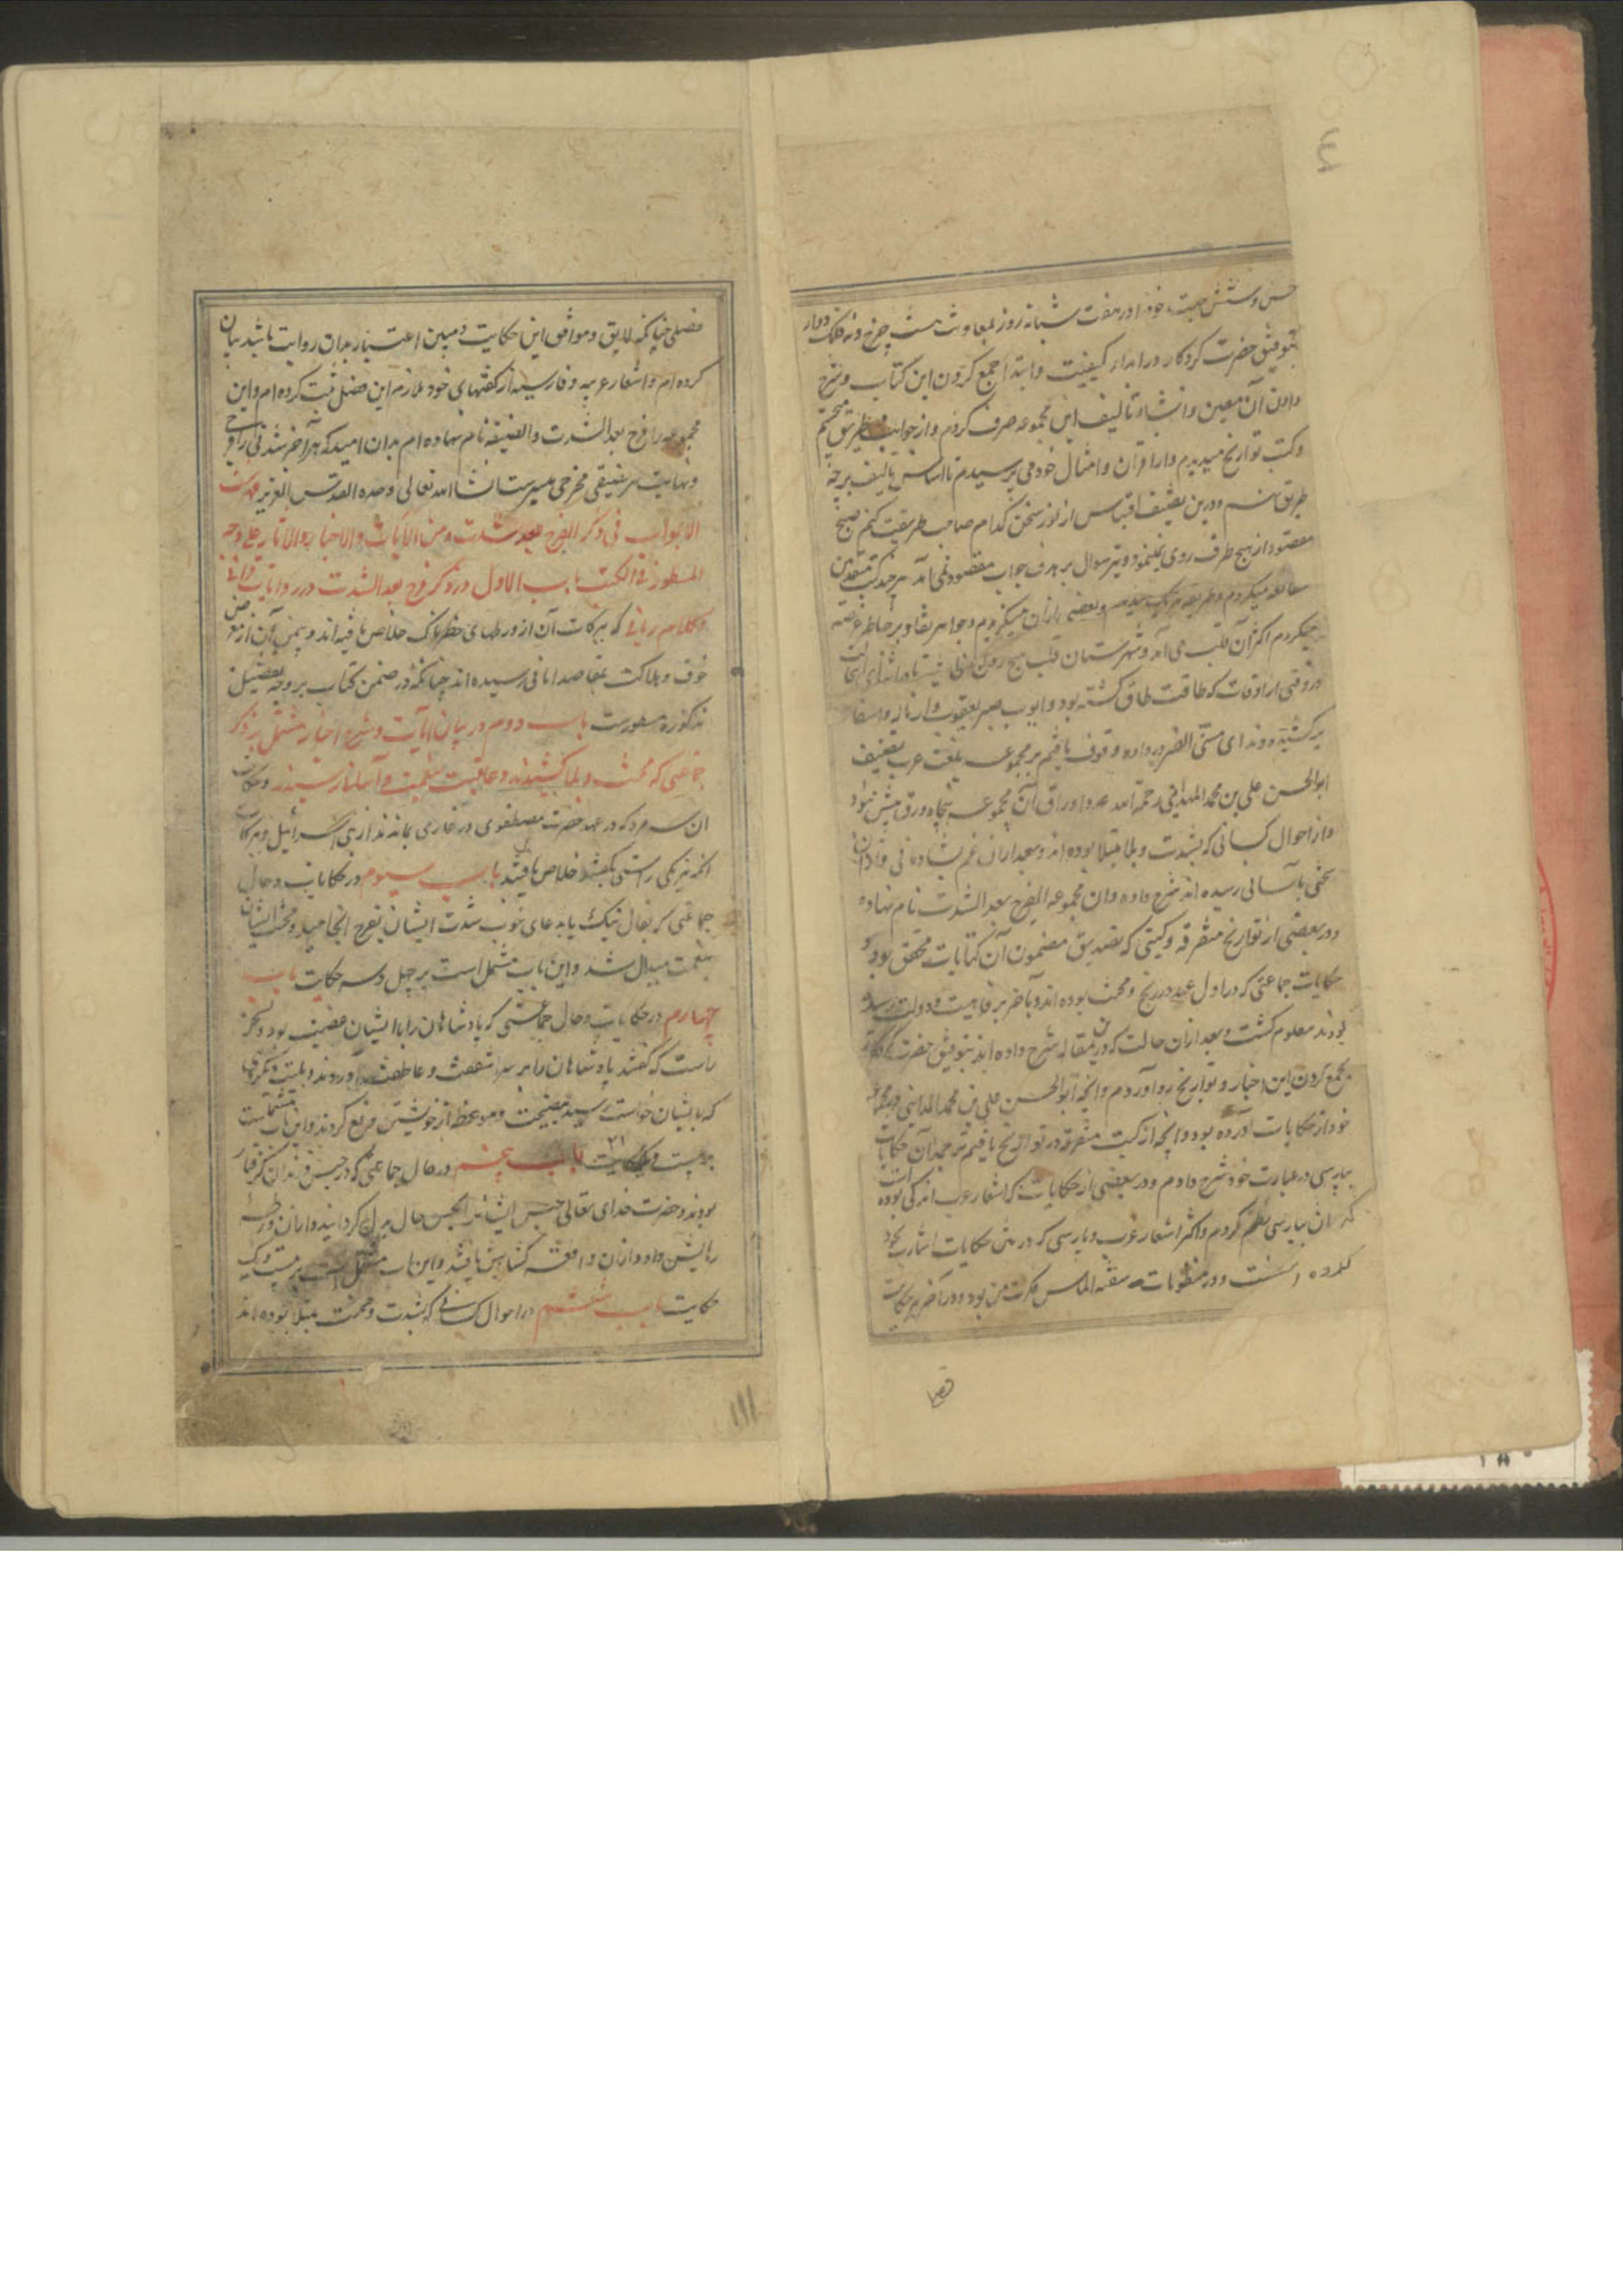 حس و شش جهت خود را در هفت شبانه روز بمعاونت هشت چرخ و نه فلک دوار
بتوفیق حضرت کردکار در ابداء کیفیت و ابتدا جمع کردن این کتاب و شرح
دادن آن معین و انشاء تألیف این مجموعه صرف کردم و از جوانب
و کتب تواریخ میدیدم و از اقران و امثال خود می پرسیدم تا اساس تالیف بر چه
طریق نهم و درین تصنیف اقتباس از نور سخن کدام صاحب طریقت کنم صبح
مقصود از هیچ طرف روی نمینمود و تیر سوال بر هدف جواب مقصود نمی آمد هر چند کتب متقدمین
مطالعه میکردم و بعضی یاران میکردم و جواهر بر خاطر عرضه
میکردم اکثر آن قلب می آمد و شهرستان قلب هیچ
در وقتی از اوقات که طاقت طاق گشته بود و ایوب صبر یعقوب وار
برکشیده و ندای مسنی الضر در داده وقوف یافتم بر مجموعه بلغت عرب تصنیف
ابوالحسن علی بن محمد المداینی رحمة الله علیه و اوراق آن مجموعه پنجاه ورق بیش نبود
و از احوال کسانی که بشدت و بلا مبتلا بوده اند و بعد از آن غم بشادمانی و از آن
سختی بآسانی رسیده اند شرح داده و آن مجموعه الفرج بعد الشدت نام نهاده
و در بعضی از تواریخ متفرقه و کتبی که تصدیق مضمون آن کنایات محقق بود و
حکایات جماعتی که در اول عهد در رنج و محنت بوده اند و بآخر برفاهیت و دولت رسیده
بودند معلوم گشت و بعد از آن حالت که درین مقاله شرح داده اند بتوفیق حضرت
بجمع کردن این اخبار و تواریخ رو آوردم و آنچه ابوالحسن علی بن محمد المداینی در مجموعه
خود از حکایات آورده بود و آنچه از کتب متفرقه در تواریخ یافتم ترجمه آن حکایات
بپارسی در عبارت خود شرح دادم و در بعضی از حکایات که اشعار عرب اندکی بوده است
که آن بپارسی نظم کردم و اکثر اشعار عرب و پارسی که در متن حکایات اشارت بخود
کرده و در منظومات سفته الماس فکرت من بود و در آخر هر حکایت
فصلی
فصلی چنانکه لایق و موافق این حکایت و مبین اعتبار بدان روایت باشد بیان
کرده ام و اشعار عربیه و فارسیه از گفتهای خود ملازم این فصل ثبت کرده ام و این
مجموعه را فرج بعد الشدت و الضیقه نام نهاده ام بدان امید که هر آخر شدتی را فرجی
و نهایت هر ضیقی مخرجی میسرست انشاالله تعالی وحده العزیز فهرست
الابواب فی ذکر الفرج بعد شدت و من الآیات و الاخبار و الآثار علی وجه
المسطور فی الکتب باب الاول در ذکر فرج بعد الشدت در روایات قرآنی
و کلام ربانی که ببرکات آن از ورطهای خطرناک خلاص یافته اند و بیمن آن از معرض
خوف و هلاکت بمقاصد امانی رسیده اند چنانکه در ضمن کتاب بر وجه تفصیل
مذکوره مسطورست باب دوم در بیان آیات و شرح اخبار مشتمل بر ذکر
جماعتی که محنت و بلا کشیدند و عاقبت بنعمت و آسانی رسیدند و حکایت
آن سه مرد که در عهد حضرت مصطفوی در غاری بماندند از بنی اسرائیل و ببرکات
آنکه هر یکی راستی بگفتند خلاص یافتند باب سیوم در حکایات و حال
جماعتی که بفال نیک یا بدعای خوب شدت ایشان بفرج انجامید و محنت ایشان
بنعمت مبدل شد و این باب مشتمل است بر چهل و سه حکایت باب
چهارم در حکایات و حال جماعتی که پادشاهان را با ایشان غضب بود و بسخن
راست که گفتند پادشاهان را بر سر شفقت و عاطفت آوردند و بلیت و مکروهی
که بایشان خواست رسید بنصیحت و موعظه از خویشتن دفع کردند و این باب مشتملست
بر بیست و یک حکایت ٢١ باب پنجم در حال جماعتی که در حبس و زندان گرفتار
بودند و حضرت خدای تعالی حبس ایشان را باحسن حال مبدل گردانید و از آن ورطه
رهایش داد و از آن واقعه گشایش یافتند و این باب مشتمل است بر بیست و یک
حکایت باب ششم در احوال کسانی که بشدت و محنت مبتلا بوده اند
١١١